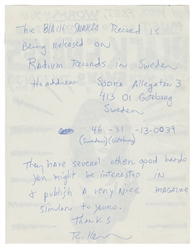 The BLACK SNAKES Record is
Being released on
Radium Records in Sweden
Headdress Sponce Allegaten 3
413 01 Göteborg
Sweden
46 - 31 - 13-0039
(Sweden) (Göteborg)
They have several other good bands
you might be interested in
& publish a very nice magazine
similar to yours.
Thanks